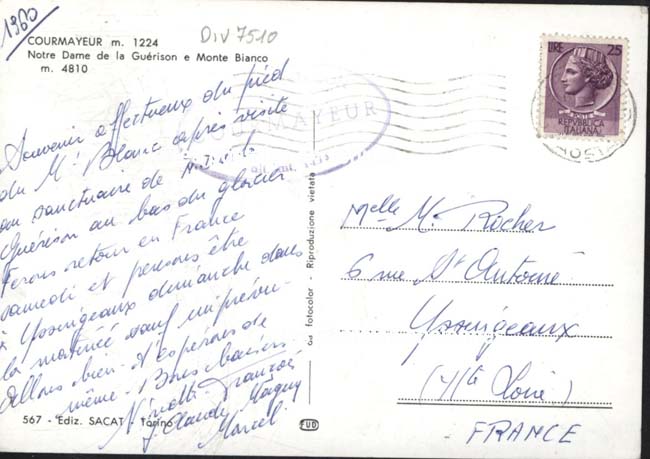 1960
DIV 7510
COURMAYEUR m. 1224
Notre Dame de la Guérison e Monte Bianco
m. 4810
Souvenir affectueux du pied
du Mt Blanc après visite
au sanctuaire de N.D. de la
Guérison au bas du glacier
Ferons retour en France
samedi et pensons être
à Yssingeaux dimanche dans
la matinée sauf imprévu.
Allons bien. N. espérons de
même. Bons baisers
Ninette François
Claudy Maguy
Marcel
567 - Ediz. SACAT - Torino
Ga fotocolor - Riproduzione vietata
FUD
COURMAYEUR
LIRE 25
POSTE
REPVBBLICA
ITALIANA
AOSTA
Melle M. Rocher
6 rue St Antoine
Yssingeaux
(Hte Loire)
FRANCE